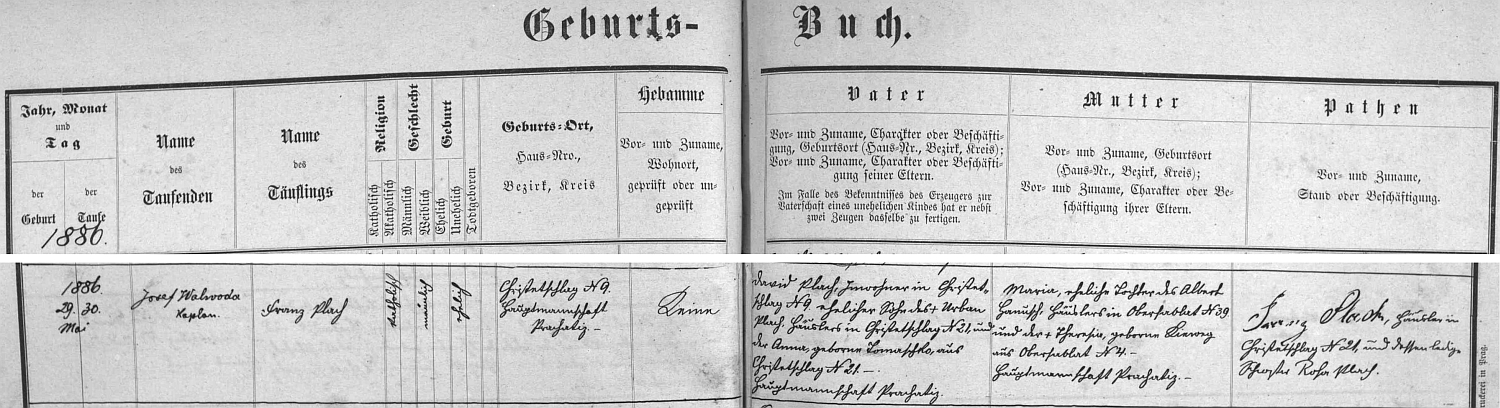 Geburts-Buch.
Jahr, Monat
und
Tag
der
Geburt
der
Taufe
1886.
Name
des
Taufenden
Name
des
Täuflings
Religion
Katholisch
Akatholisch
Geschlecht
Männlich
Weiblich
Geburt
Ehelich
Unehelich
Todtgeboren
Geburts-Ort,
Haus-Nro.,
Bezirk, Kreis
Hebamme
Vor- und Zuname,
Wohnort,
geprüft oder un-
geprüft
Vater
Vor- und Zuname, Charakter oder Beschäfti-
gung, Geburtsort (Haus-Nr., Bezirk, Kreis);
Vor- und Zuname, Charakter oder Beschäfti-
gung seiner Eltern.
Im Falle des Bekenntnisses des Erzeugers zur
Vaterschaft eines unehelichen Kindes hat er nebst
zwei Zeugen dasselbe zu fertigen.
Mutter
Vor- und Zuname, Geburtsort
(Haus-Nr., Bezirk, Kreis);
Vor- und Zuname, Charakter oder Be-
schäftigung ihrer Eltern.
Pathen
Vor- und Zuname,
Stand oder Beschäftigung.
1886
29. 30.
Mai
Josef Walwoda
Kaplan.
Franz Plach
katholisch
männlich
ehelich
Christetschlag N 9.
Hauptmannschaft
Prachatiz. –
Keine
David Plach, Inwohner in Christet-
schlag N 9. ehelicher Sohn des + Urban
Plach, Häuslers in Christetschlag N 21, und
der Anna, geborne Tomaschko, aus
Christetschlag N 21. –
Hauptmannschaft Prachatiz.
Maria, eheliche Tochter des Albert
Hauisch, Häuslers in Obersablat N 39
und der + Theresia, geborne Kieweg
aus Obersablat N 4. –
Hauptmannschaft Prachatiz. –
Franz Plach, Häusler in
Christetschlag N 21, und dessen ledige
Schwester Rosa Plach.
druckerei in Prag.